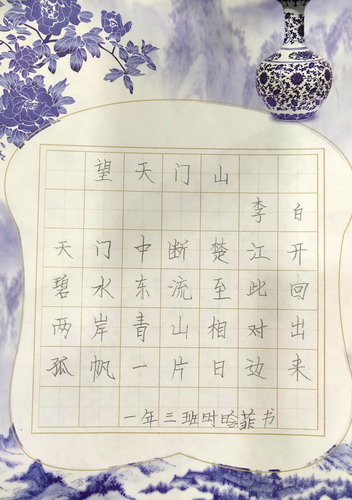 望天门山
李白
天门中断楚江开
碧水东流至此回
两岸青山相对出
孤帆一片日边来
一年三班时晗菲书